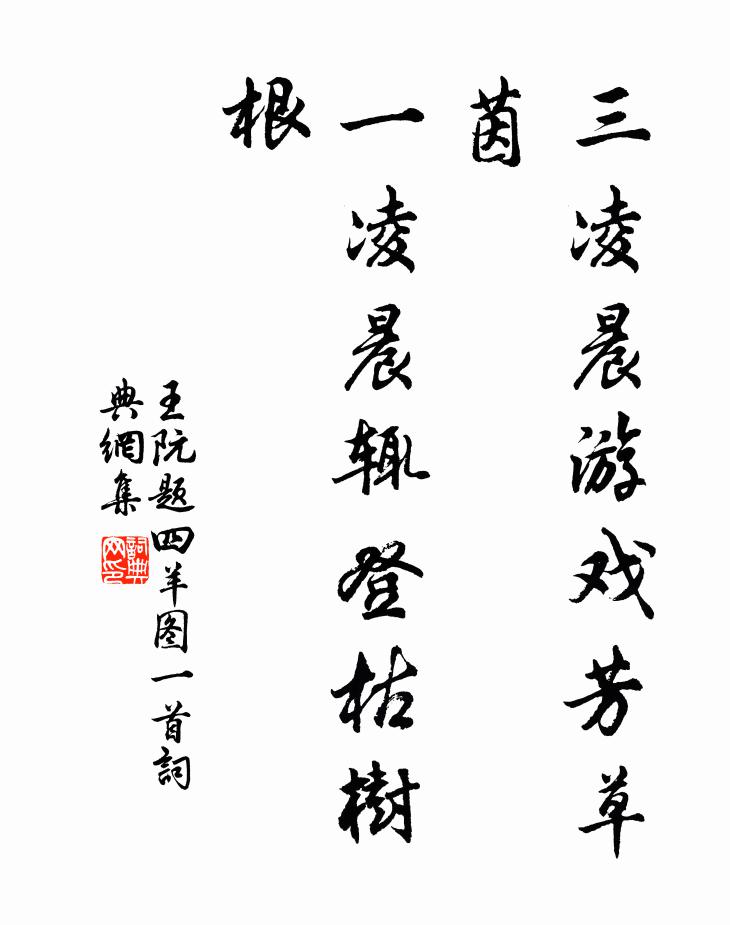 三凌晨游戏芳草
茵
一凌晨辄登枯樹
根
王阮题四羊图一首詞
典網集
詞典
网印